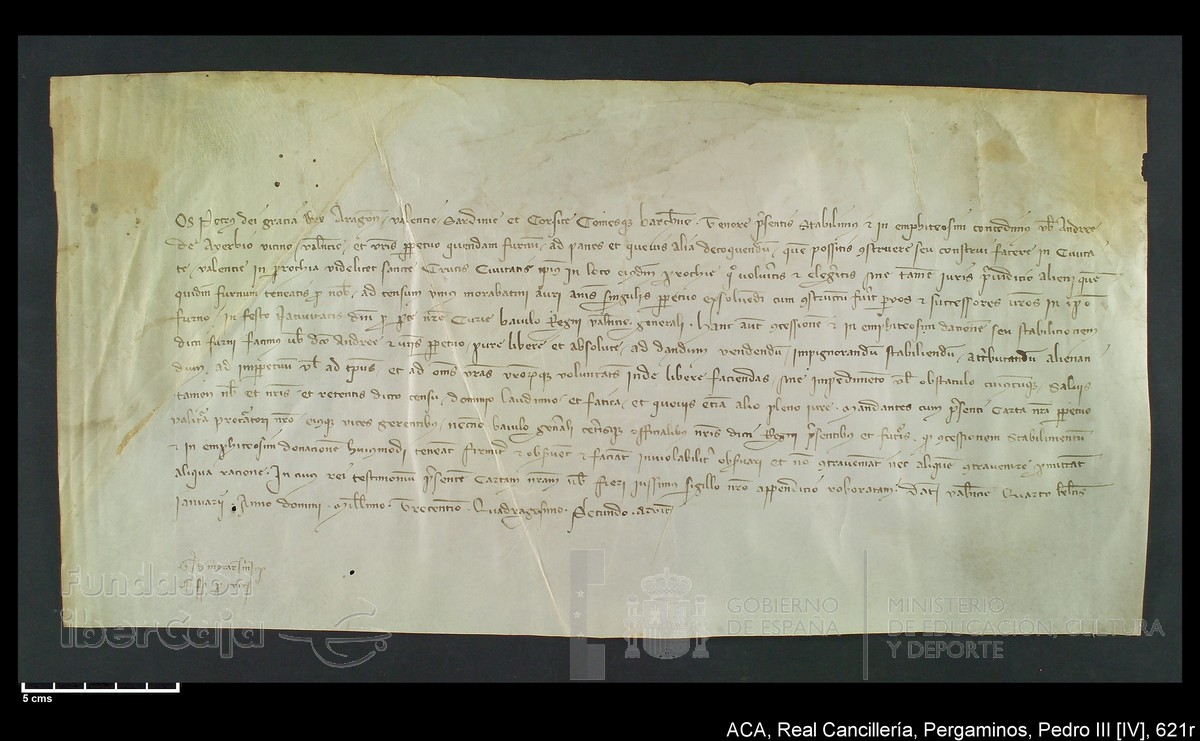 Os Petrus dei gracia Rex Aragon valencie Sardinie et Corsice Comesque barchinone Tenore presentis Stabilimus et in emphiteosim concedimus vobis Andree
de Ayerbio vicino valencie et vestris perpetuo quendam furnum ad panes et quevis alia decoquendum quem possitis construere seu construi facere in Civita
te valencie in parrochia videlicet sancte Crucis Civitatis ipsius in loco eiusdem parrochie quo volueritis et elegeritis sine tamen iuris preiudicio alieni quem
quidem furnum teneatis pro nobis ad censum unius morabatini auri annis singulis perpetuo exsolvendi cum constructum fuerit per vos et successores vestros in ipso
furno in festo Nativitatis domini pro parte nostre Curie baiulo Regni valencie generali Hanc autem concessionem et in emphiteosim dationem seu stabilicionem
dicti furni facimus vobis dicto Andree et vestris perpetuo pure libere et absolute ad dandum vendendum impignorandum stabiliendum atributandum alienan
dum ad imperpetuum vel ad tempus et ad omnes vestras vestrorumque voluntates inde libere faciendas sine impedimento vel obstaculo cuiuscumque Salvis
tamen nobis et nostris et retentis dicto censu dominio laudimio et fatica et quovis etiam alio pleno iure Mandantes cum presenti Carta nostra perpetuo
valitura procuratori nostro eiusque vices gerentibus necnon baiulo generali ceterisque officialibus nostris dicti Regni presentibus et futuris quod concessionem Stabilimentum
et in emphiteosim donacionem huiusmodi teneant firmiter et observent et faciant inviolabiliter observari et non contraveniant nec aliquem contravenire permittant
aliqua racione In cuius rei testimonium presentem Cartam nostram vobis fieri iussimus sigillo nostro appendicio roboratam Dat valencie Quarto kalendas
Ianuarii Anno domini Millesimo Trecentesimo Quadragesimo Secundo
Fundación
iberCaja
GOBIERNO
DE ESPAÑA
MINISTERIO
DE EDUCACIÓN, CULTURA
Y DEPORTE
5 cms
ACA, Real Cancillería, Pergaminos, Pedro III [IV], 621r